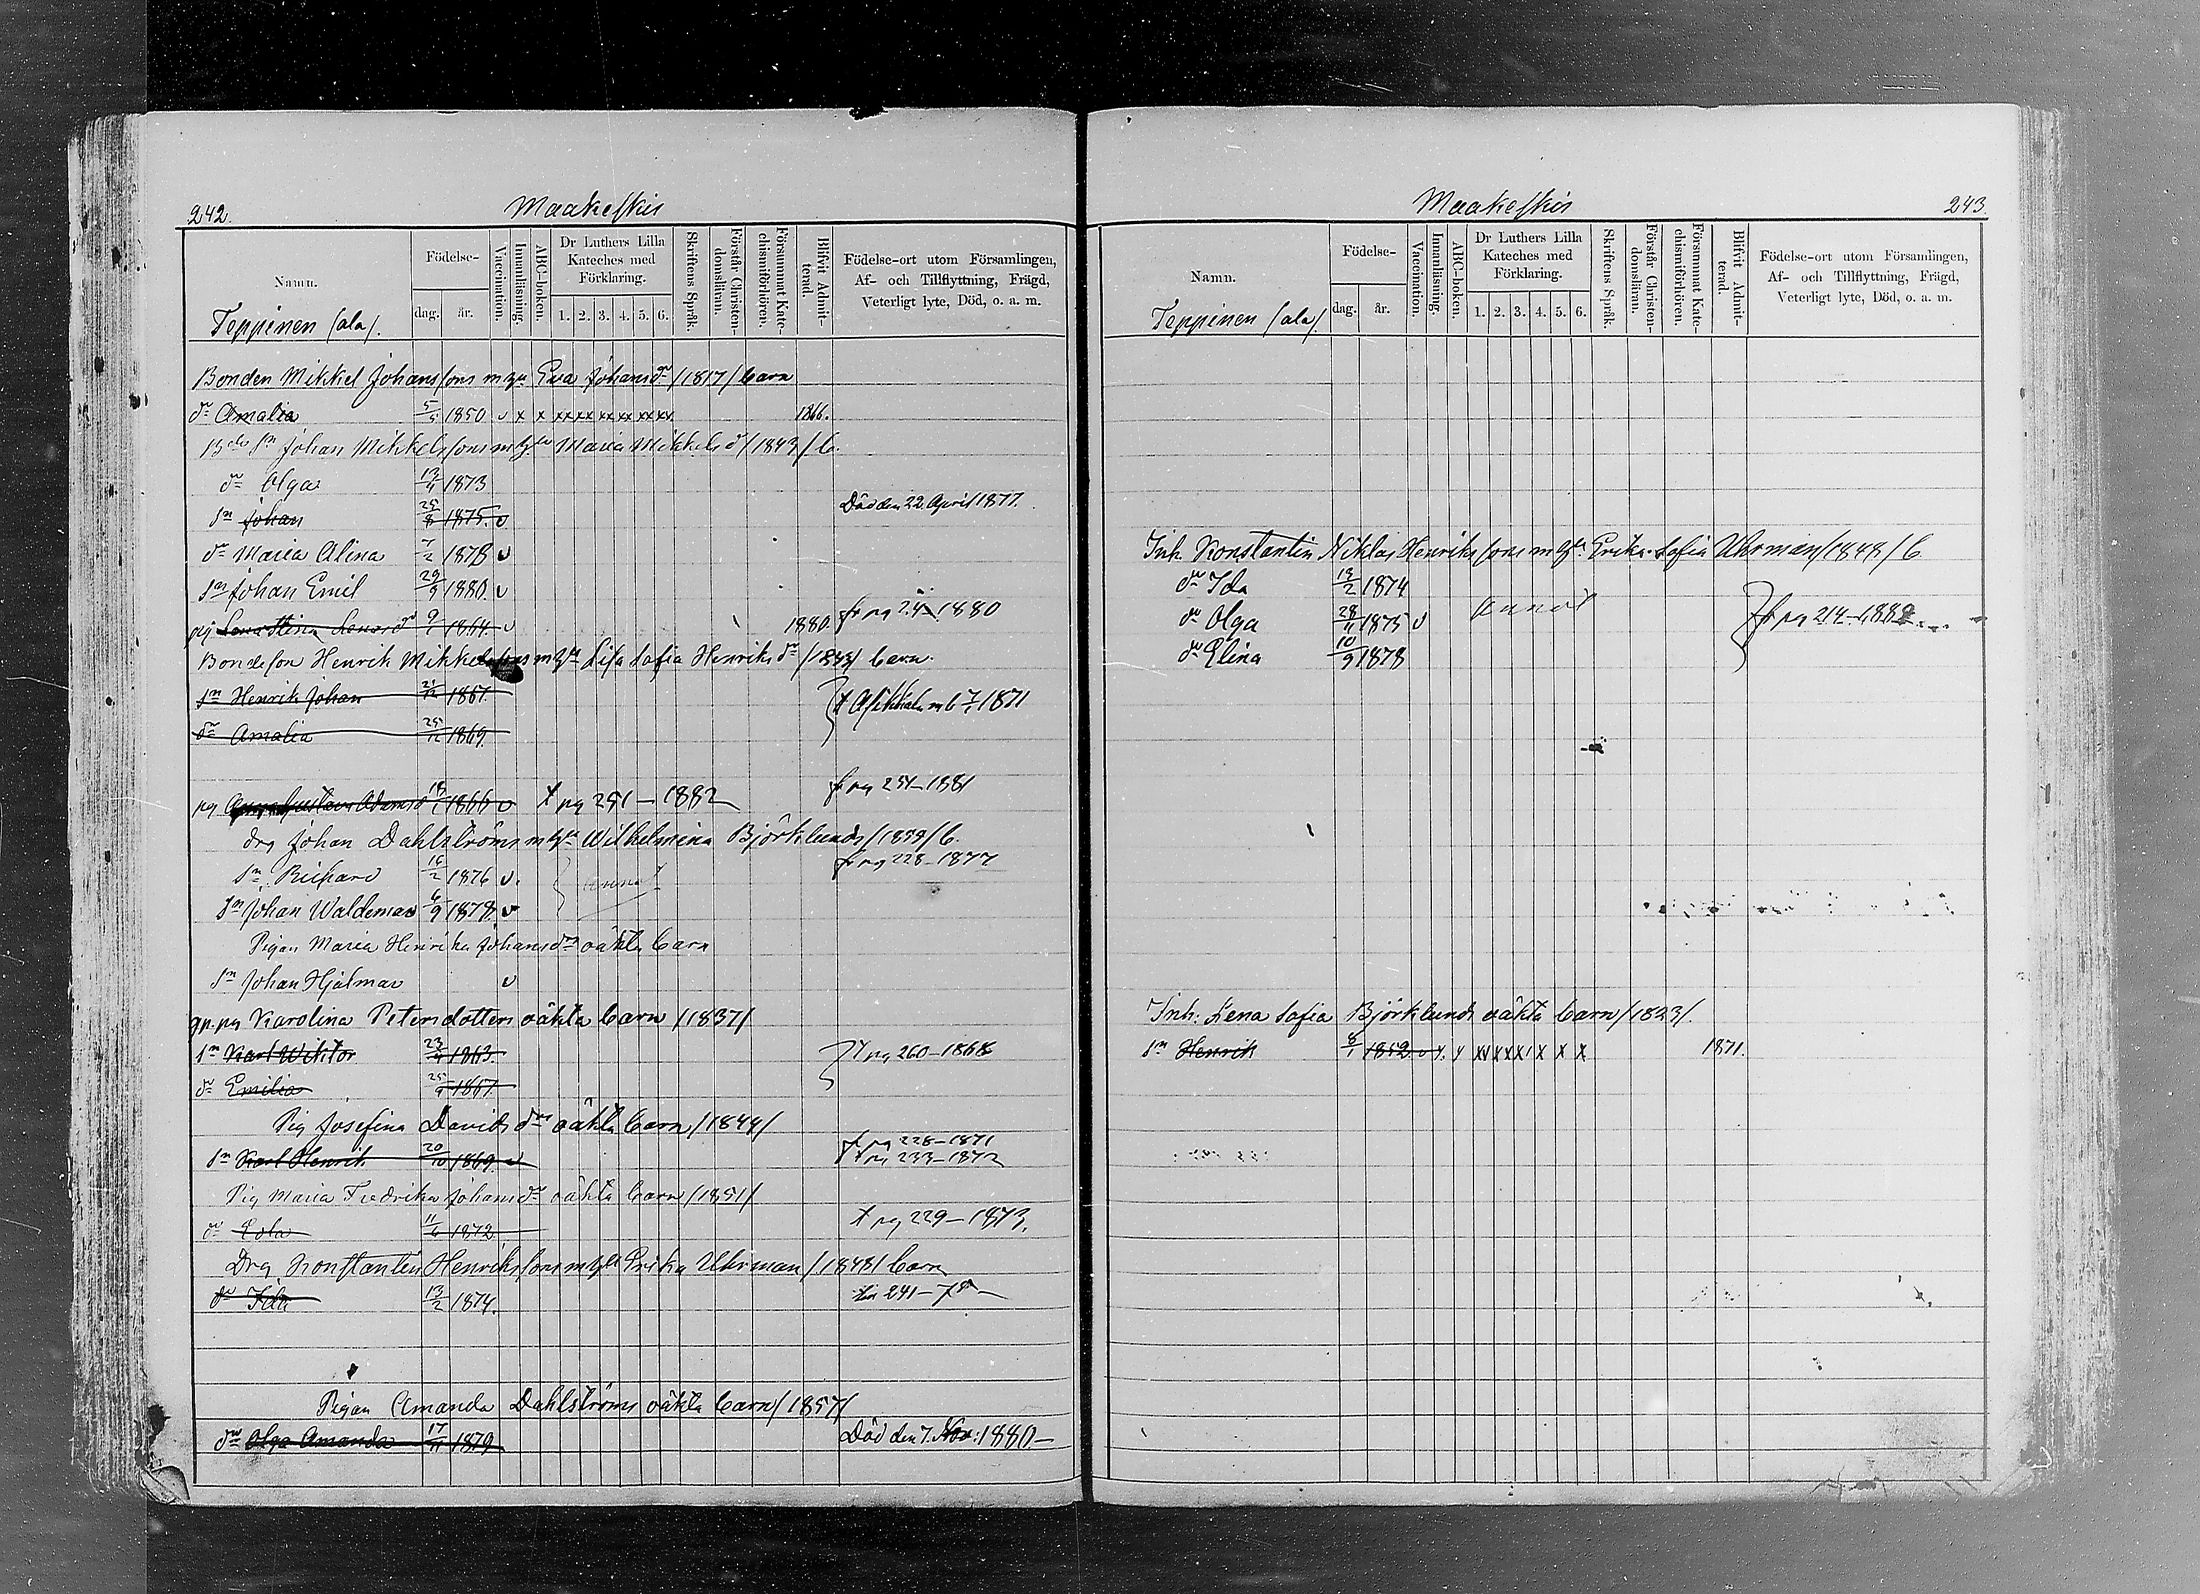 242.
Maakeskis
Namn.
Födelse-
dag.
år.
Vaccination.
Innanläsning.
ABC-boken.
Dr Luthers Lilla
Kateches med
Förklaring.
1. 2. 3. 4. 5. 6.
Skriftens Språk.
Förstår Christen-
domsläran.
Försummat Kate-
chismiförhören.
Blifvit Admit-
terad.
Födelse-ort utom Församlingen,
Af- och Tillflyttning, Frägd,
Veterligt lyte, Död, o. a. m.
Teppinen (ala).
Bonden Mikkel Johanssons m hu Eva Johansdr /1817/ barn
dr Amalia 5/5 1850 v x x xx xx xx xx xx xx 1866.
Bde sn Johan Mikkelssons m hu Maria Mikkelsdr /1843/ b.
dr Olga 13/11 1873
sn Johan 25/8 1875. v Död den 22 April 1877.
dr Maria Alina 7/2 1878 v
sn Johan Emil 29/9 1880. v
pig Lena Stina 1864 v 1880. fr pg 1880
Bondeson Henrik Mikkelssons m hu Lisa Sofia Henriksdr barn.
sn Henrik Johan 21/12 1867. x Asikkala m b 7/1 1871
dr Amalia 25/12 1869.
pg Anna Gustava Adamsdr 1866 v x pg 251 – 1882 fr pg 251–1881
drg Johan Dahlströms m hu Wilhelmina Björklunds b.
sn Richard 16/2 1876 v. fr pg 228–1877
sn Johan Waldemar 6/9 1878 v
Pigan Maria Henrika Johansdrs oäkta barn
sn Johan Hjalmar v
Karolina Petersdotters oäkta barn /1837/
sn Karl Wiktor 1863. x pg 260–1868
dr Emilia 25/9 1867.
Pig Josefina Davidsdrs oäkta barn /1849/
sn Karl Henrik 20/10 1869. v fr pg 228–1871
x pg 233–1872
Pig Maria Fredrika Johansdr oäkta barn /1851/
dr Edla 11/6 1872 x pg 229–1873.
Drg Konstantin Henrikssons m hu Erika Uhrman /1848/ barn
dr Ida 13/2 1874.
Pigan Amanda Dahlströms oäkta barn /1857/
dr Olga Amanda 17/11 1879 Död den 7. Nov: 1880–
Maakeskis
243.
Namn.
Födelse-
dag.
år.
Vaccination.
Innanläsning.
ABC-boken.
Dr Luthers Lilla
Kateches med
Förklaring.
1. 2. 3. 4. 5. 6.
Skriftens Språk.
Förstår Christen-
domsläran.
Försummat Kate-
chismiförhören.
Blifvit Admit-
terad.
Födelse-ort utom Församlingen,
Af- och Tillflyttning, Frägd,
Veterligt lyte, Död, o. a. m.
Teppinen (ala).
Inh. Konstantin Niklas Henrikssons m hu Erika Sofia Uhrman /1848/ b
dr Ida 13/2 1874
dr Olga 28/11 1875 v fr pg 214–
dr Elina 10/9 1878
Inh: Lena Sofia Björklunds oäkta barn /1823/.
sn Henrik 8/1 1852 v 1871.